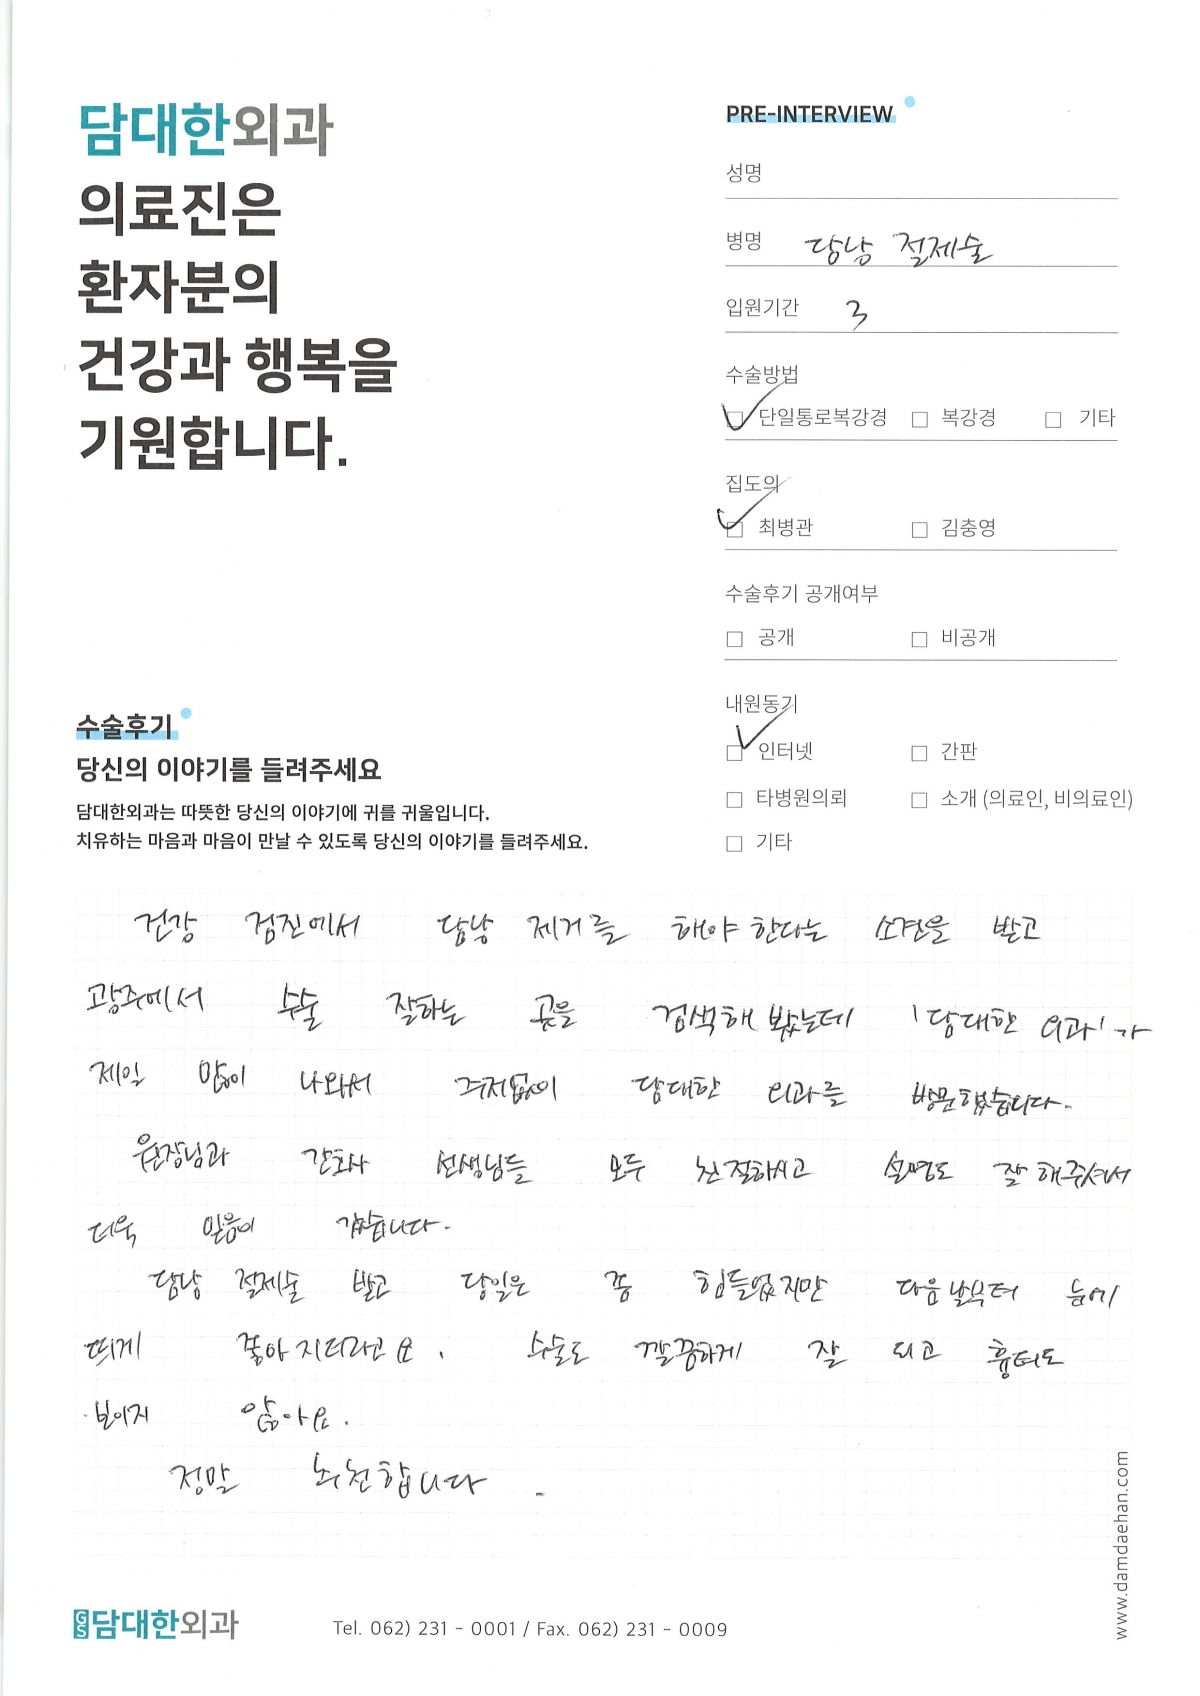 담대한외과
의료진은
환자분의
건강과 행복을
기원합니다.
PRE-INTERVIEW
성명
병명 담낭 절제술
입원기간 3
수술방법
단일통로복강경 복강경 기타
집도의
최병관 김충영
수술후기 공개여부
공개 비공개
내원동기
인터넷 간판
타병원의뢰 소개 (의료인, 비의료인)
기타
수술후기
당신의 이야기를 들려주세요
담대한외과는 따뜻한 당신의 이야기에 귀를 귀울입니다.
치유하는 마음과 마음이 만날 수 있도록 당신의 이야기를 들려주세요.
건강 검진에서 담낭 제거를 해야 한다는 소견을 받고
광주에서 수술 잘하는 곳을 검색해 봤는데 '담대한 외과'가
제일 많이 나와서 주저없이 담대한 외과를 방문했습니다.
원장님과 간호사 선생님들 모두 친절하시고 설명도 잘 해주셔서
더욱 믿음이 갔습니다.
담낭 절제술 받고 당일은 좀 힘들었지만 다음날부터 눈에
띄게 좋아지더라고요. 수술도 깔끔하게 잘 되고 흉터도
보이지 않아요.
정말 추천합니다.
GS 담대한외과
Tel. 062) 231 - 0001 / Fax. 062) 231 - 0009
www.damdaehan.com